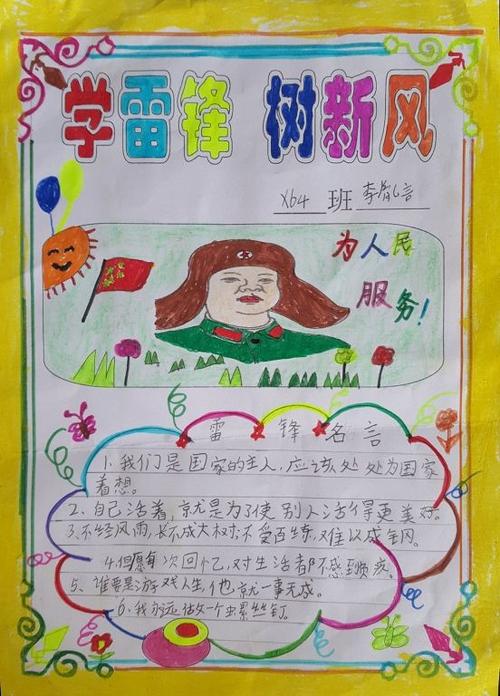 学雷锋 树新风
X64 班 李
为人民
服务!
雷锋名言
1. 我们是国家的主人,应该处处为国家
着想。
2、自己活着,就是为了使别人活得更美好。
3、不经风雨,长不成大树,不受百练,难以成钢。
4.但愿每次回忆,对生活都不感到负疚。
5、谁要是游戏人生,他就一事无成。
6、我永远做一个虫累丝钉。